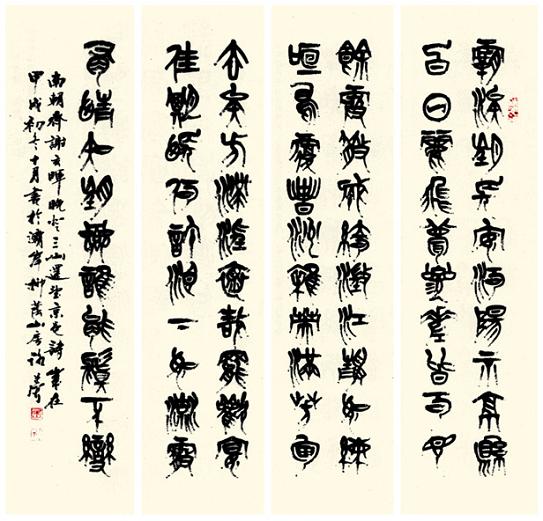 霸涘望長安河陽示京縣
白日麗飛甍參差皆可見
餘霞散成綺澄江靜如練
喧鳥覆春洲雜英滿芳甸
去矣方滯淫懷哉罷歡宴
佳期悵何許淚下如流霰
有情知望鄉誰能鬒不變
南朝齊謝玄暉晚登三山還望京邑詩歲在
甲戌初冬十月書於濟岸柳蔭山房